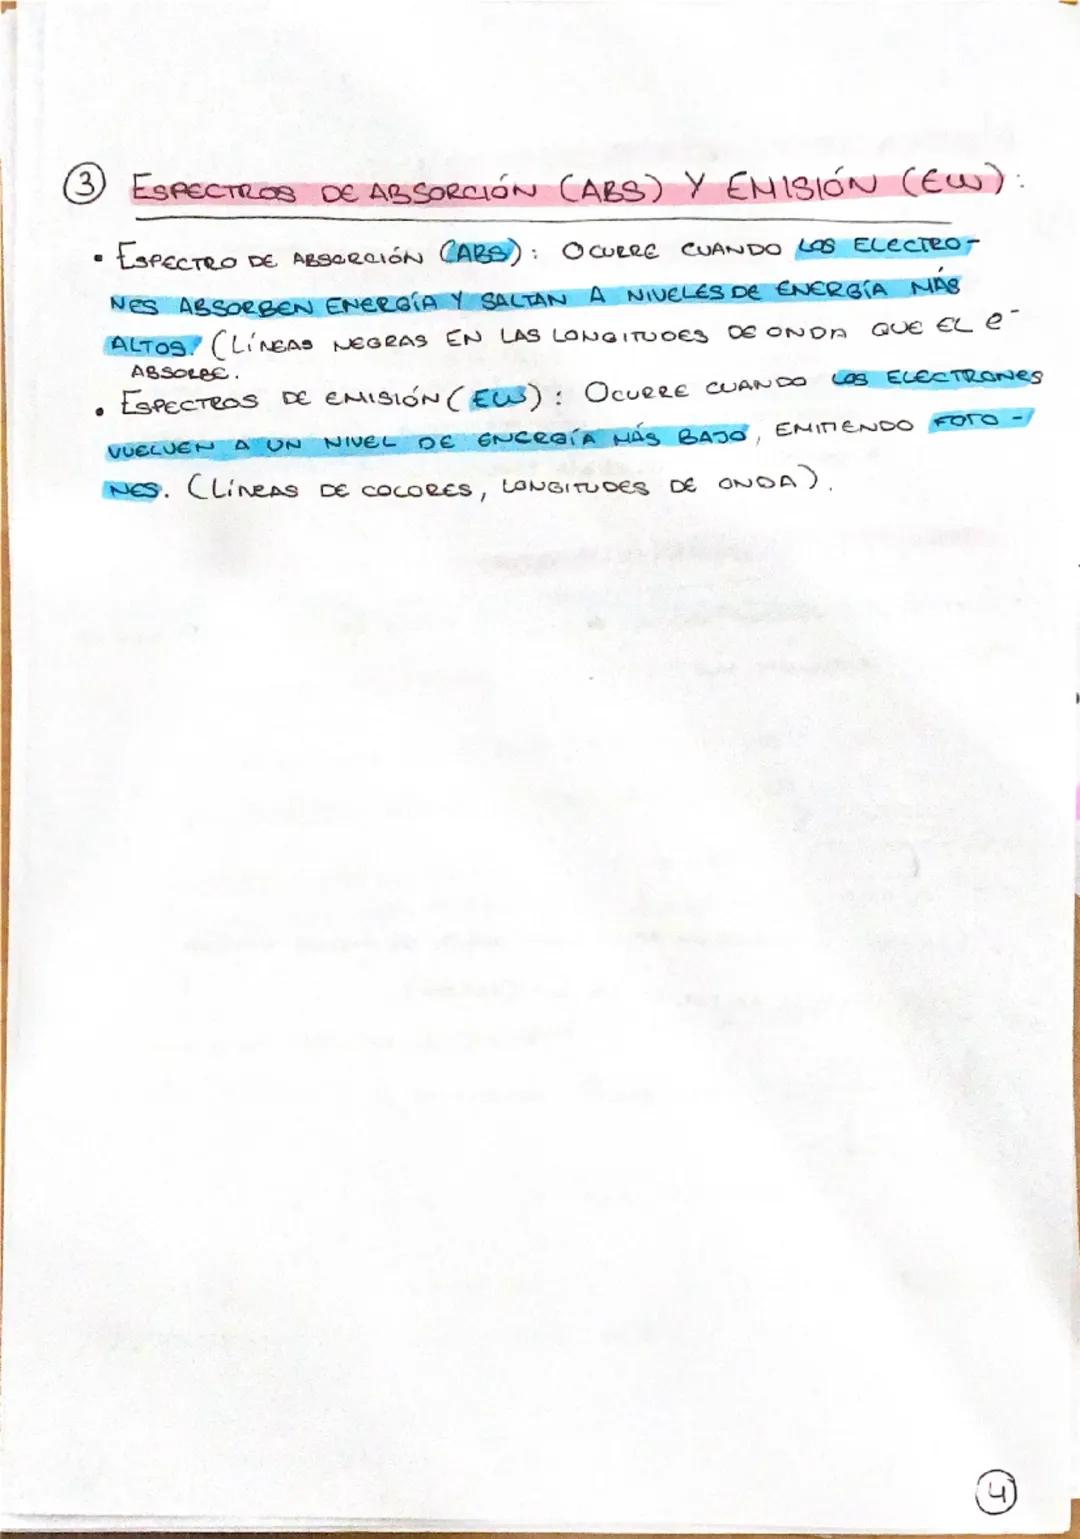 ③ ESPECTROS DE ABSORCIÓN (ABS) Y EMISIÓN (EW):
• ESPECTRO DE ABSORCIÓN (ABS): OCURRE CUANDO LOS ELECTRO-
NES ABSORBEN ENERGÍA Y SALTAN A NIVELES DE ENERGÍA MÁS
ALTOS. (LÍNEAS NEGRAS EN LAS LONGITUDES DE ONDA QUE EL e⁻
ABSORBE.
• ESPECTROS DE EMISIÓN (EW): OCURRE CUANDO LOS ELECTRONES
VUELVEN A UN NIVEL DE ENERGÍA MÁS BAJO, EMITIENDO FOTO-
NES. (LÍNEAS DE COLORES, LONGITUDES DE ONDA).
④